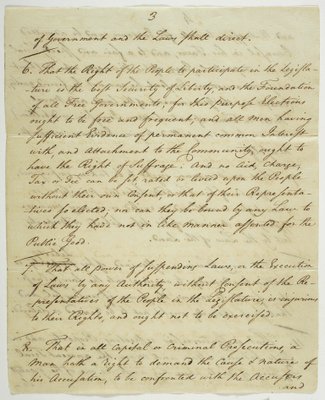 3
of Government and the Laws shall direct.
6. That the Right of the People to participate in the Legisla-
ture is the best Security of Liberty, and the Foundation
of all Free Governments; for this purpose Elections
ought to be free and frequent, and all Men having
sufficient Evidence of permanent common Interest
with, and attachment to the Community, ought to
have the Right of Suffrage. And no Aid, Charge,
Tax or Fee can be set, rated or levied upon the People
without their own Consent, or that of their Representa-
tives so elected; nor can they be bound by any Law to
which they have not in like manner assented for the
Public Good.
7. That all power of suspending Laws, or the Execution
of Laws by any Authority, without Consent of the Re-
presentatives of the People in the Legislature, is injurious
to their Rights, and ought not to be exercised.
8. That in all Capital or Criminal Prosecutions, a
Man hath a right to demand the Cause & nature of
his Accusation, to be confronted with the Accusers
and